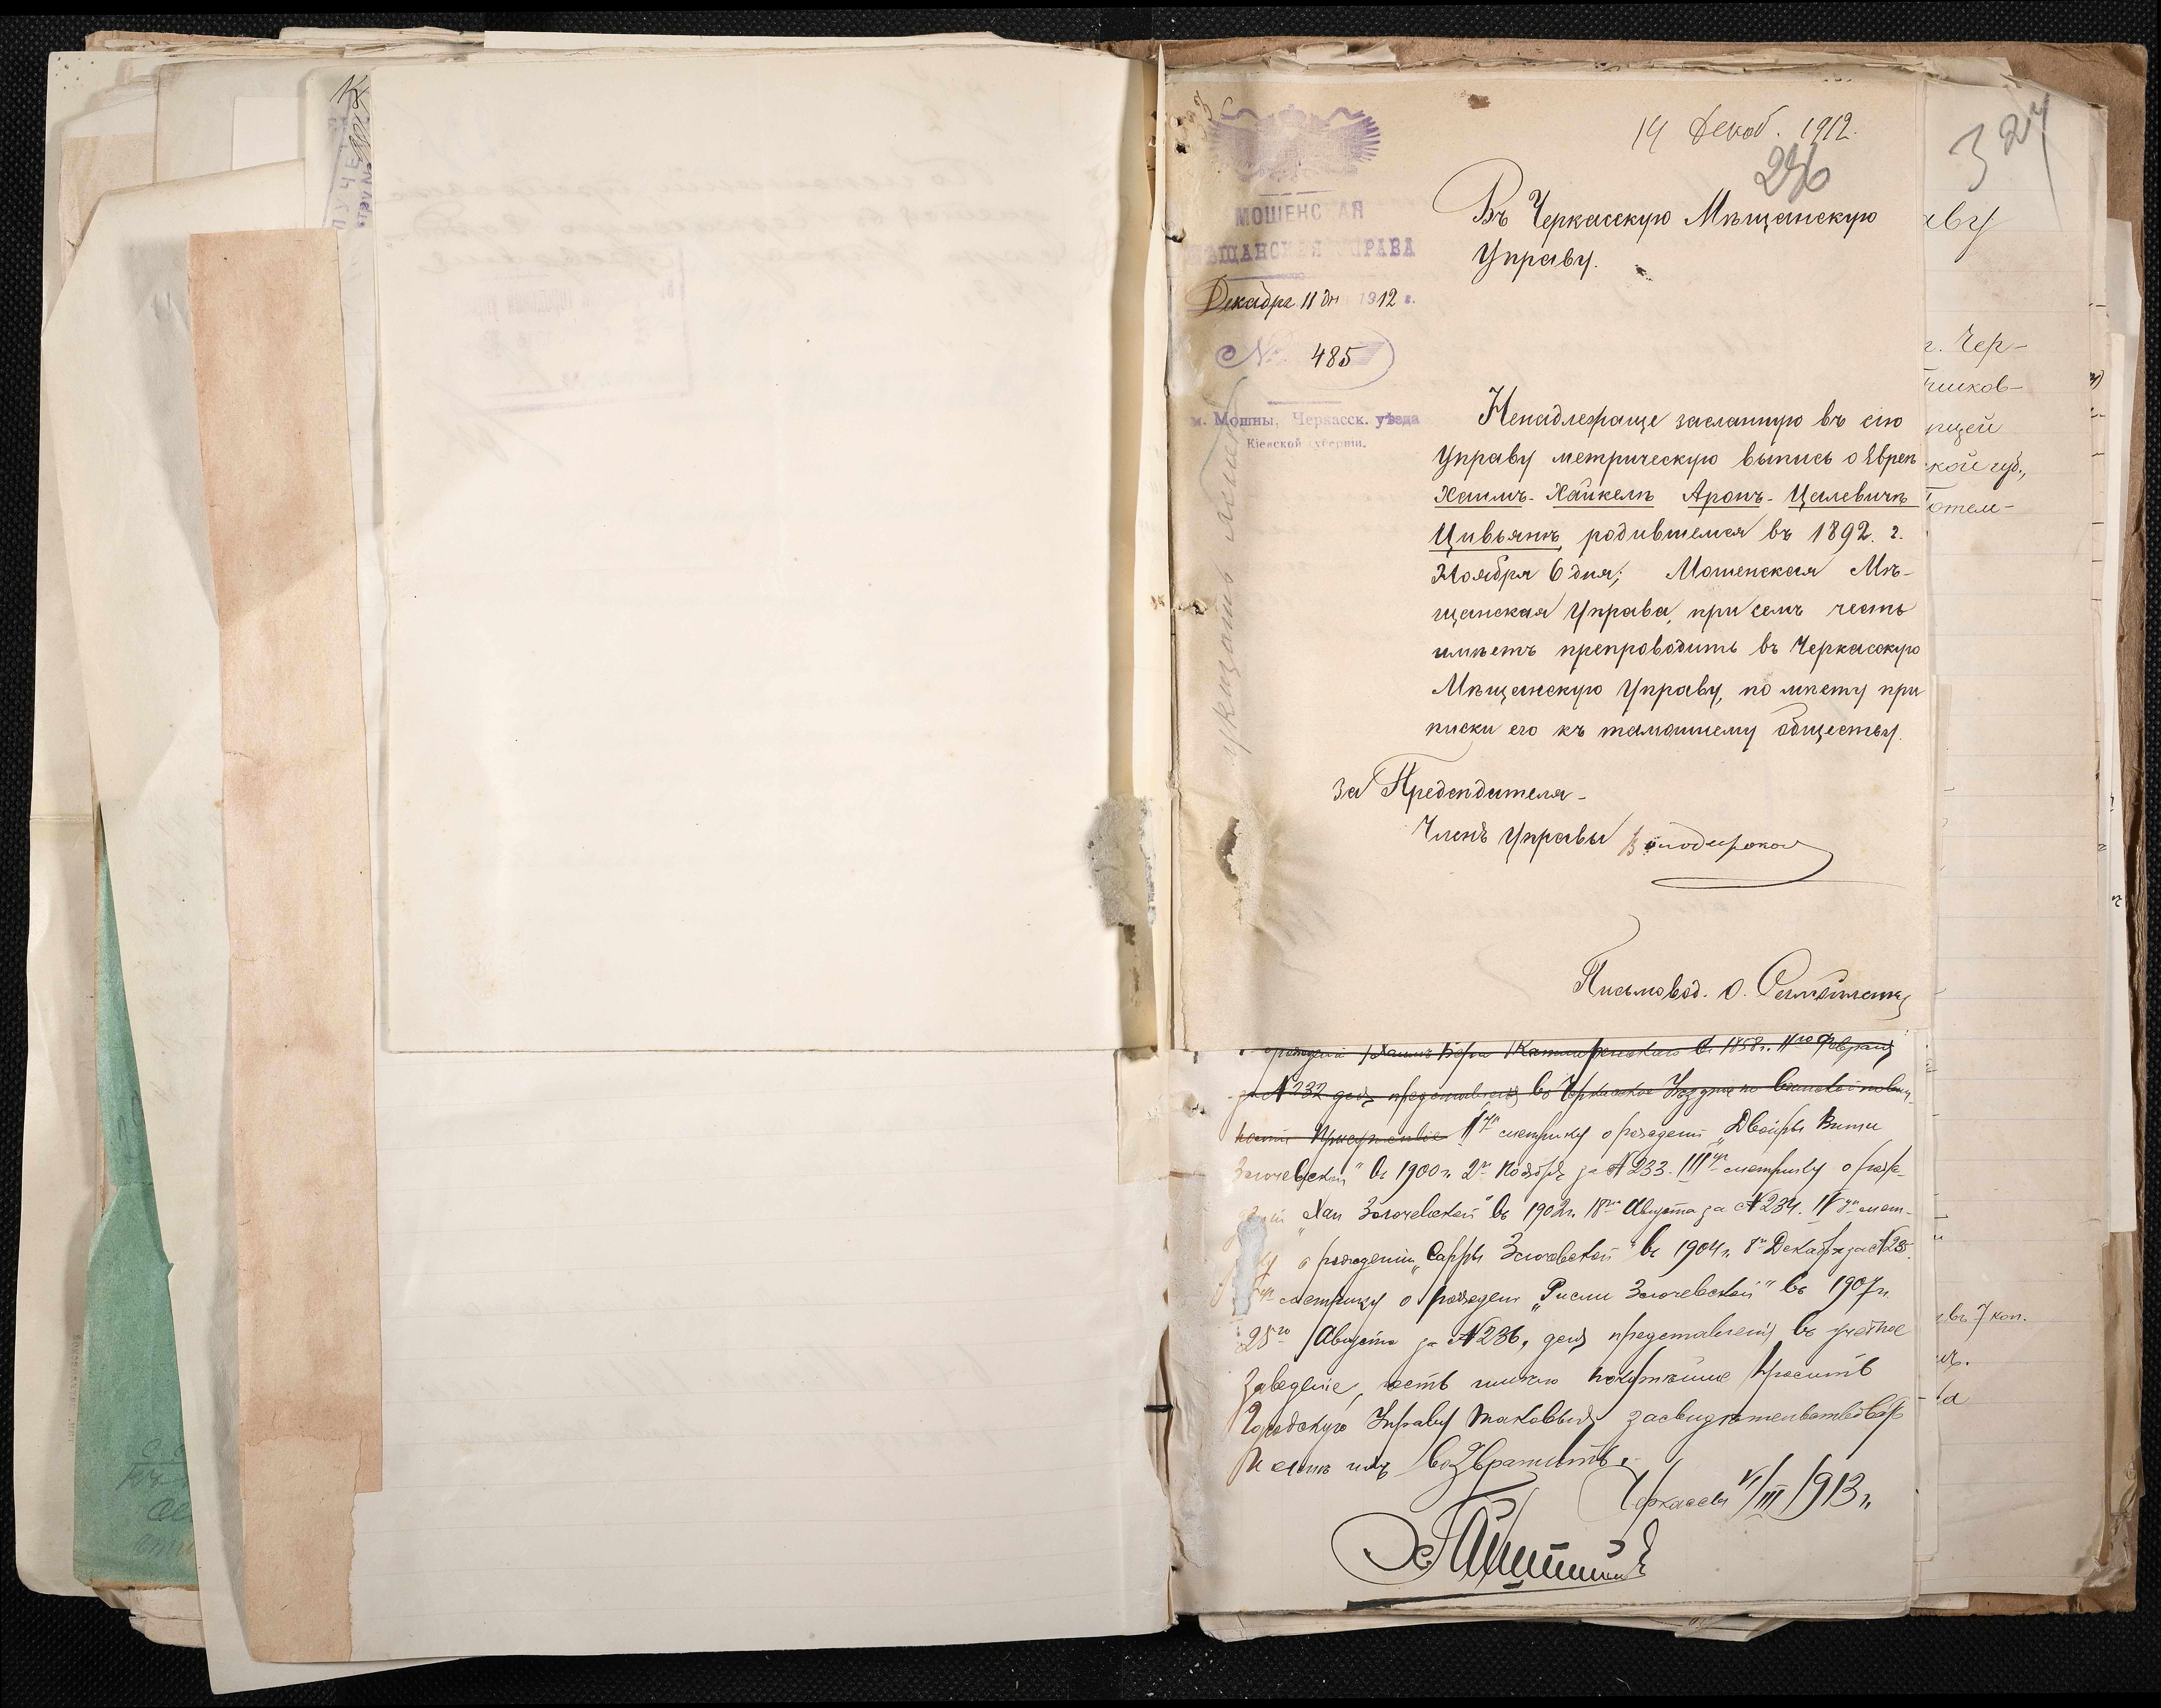 14 Декаб. 1912.
236
МОШЕНС АЯ
ѢЩАНСКАЯ УПРАВА
Декабря 11 дн 1912 г.
№ 485
м. Мошны, Черкасск. уѣзда
Кіевской губерніи.
Въ Черкасскую Мѣщанскую
Управу.
Ненадлежаще засланную въ сію
Управу метрическую выпись о Евреѣ
Хаимъ-Хайкелѣ Аронъ-Цалевичѣ
Цивьянъ, родившемся въ 1892. г.
Ноября 6 дня; Мошенская Мѣ-
щанская Управа, при семъ честь
имѣетъ препроводить въ Черкасскую
Мѣщанскую Управу, по мѣсту при
писки его къ тамошнему обществу.
За Предсѣдателя-
Членъ Управы
Письмовод. О.
в 1858 г. 11го Февраля
за №232 для представленія въ Черкасское Уѣздное по воинской повин-
ности Присутствіе IIую метрику о рожденіи „Двойры Вити
Злочевской" въ 1900 г. 2го Ноября за №233. IIIую метрику о рож-
деніи „Хаи Злочевской" въ 1902 г. 18го Августа за №234. IVую мет-
о рожденіи „Сарры Злочевской" въ 1904 г. 8го Декабря за №235.
метрику о рожденіи „Рисли Злочевской" въ 1907 г.
25го Августа за №236, для представленія въ учебное
Заведеніе, честь имѣю покорнѣйше просить
Городскую Управу таковыя засвидѣтельствовать
и мнѣ ихъ возвратить.
Черкассы VI/III 1913 г.
324
аву
г. Чер-
щей
кой губ.,
отем-
въ 7 коп.